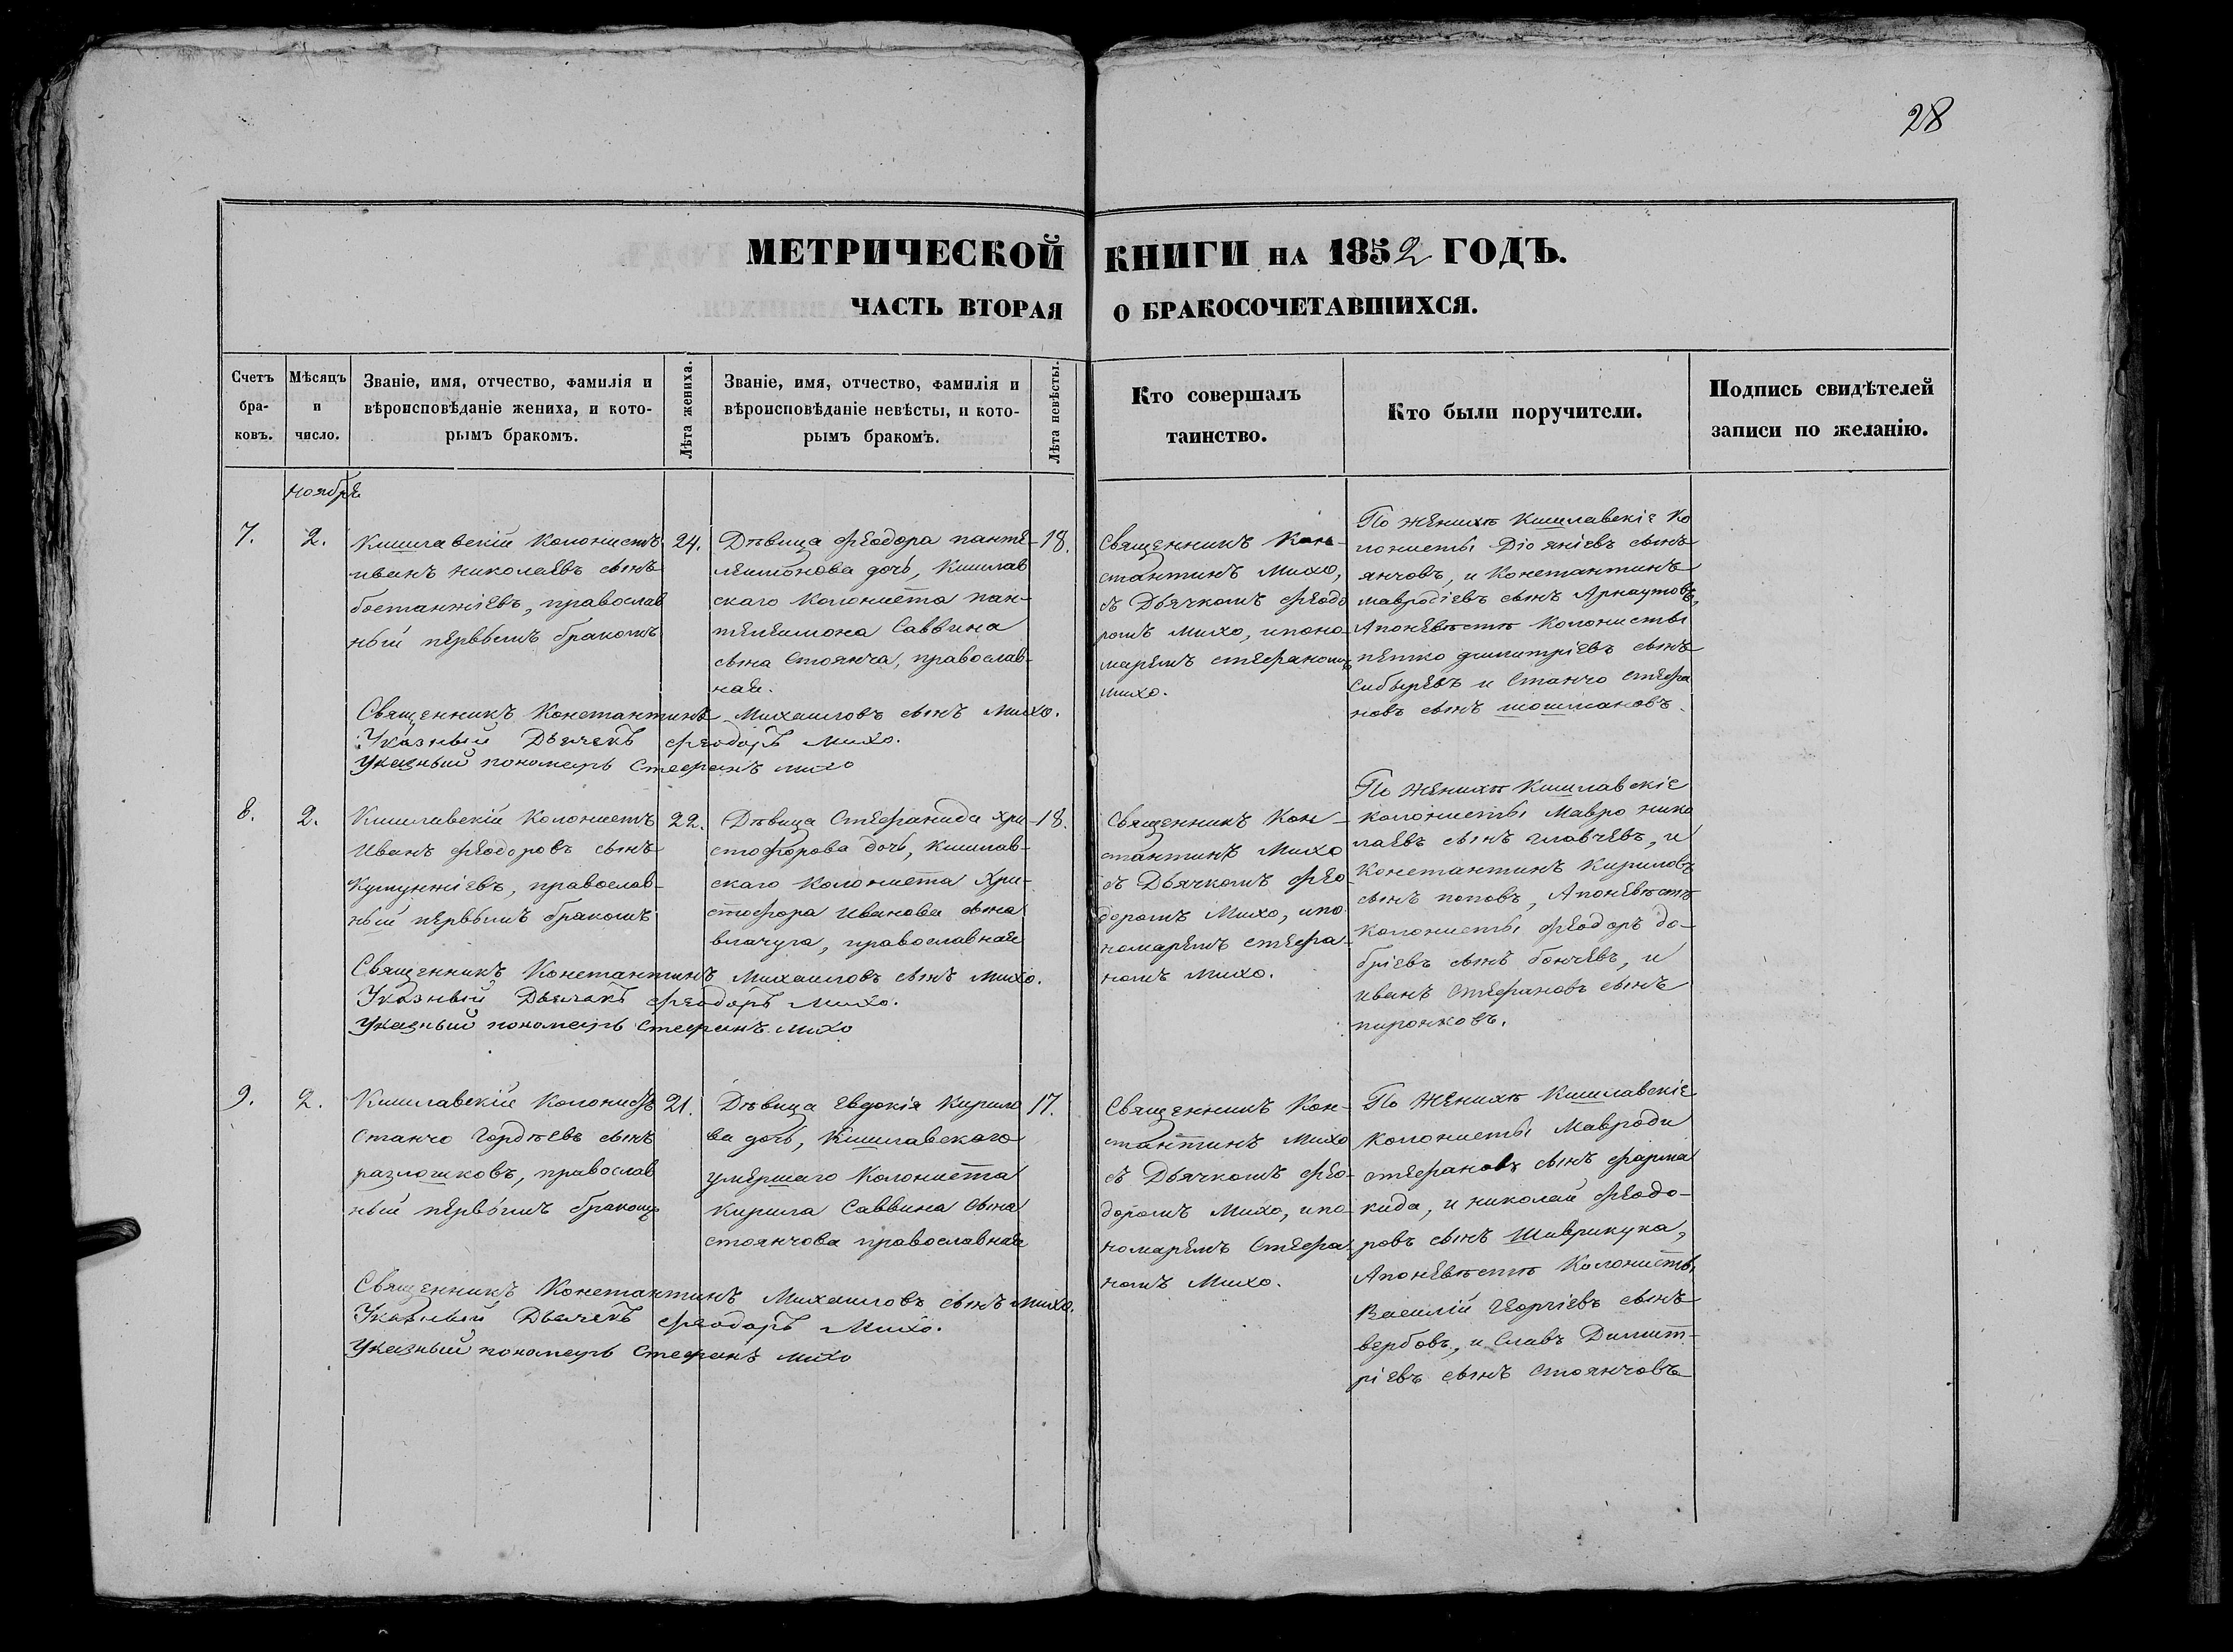 28
МЕТРИЧЕСКОЙ КНИГИ НА 1852 ГОДЪ.
ЧАСТЬ ВТОРАЯ О БРАКОСОЧЕТАВШИХСЯ.
Счетъ
бра-
ковъ.
Мѣсяцъ
и
число.
Званіе, имя, отчество, фамилія и
вѣроисповѣданіе жениха, и кото-
рымъ бракомъ.
Лѣта жениха.
Званіе, имя, отчество, фамилія и
вѣроисповѣданіе невѣсты, и кото-
рымъ бракомъ.
Лѣта невѣсты.
Кто совершалъ
таинство.
Кто были поручители.
Подпись свидѣтелей
записи по желанію.
ноября
7.
2.
Кишлавскій Колонистъ
иванъ николаевъ сынъ
бостанжіевъ, православ
ный первымъ бракомъ
24.
Дѣвица феодора панте-
леимонова дочь, Кишлав
скаго Колониста пан-
телеимона Саввина
сына Стоянча, православ-
ная.
18.
Священникъ Кон-
стантинъ Михо,
съ Дьячкомъ феодо
ромъ Михо, ипоно-
маремъ стефаномъ
михо.
По женихѣ Кишлавскіе Ко
лонисты Діо яніевъ сынъ
янчовъ, и Константинъ
мавродіевъ сынъ Арнаутовъ,
Апоневѣстѣ Колонисты
петко димитріевъ сынъ
Сибыревъ и Станчо стефа
новъ сынъ шошмановъ.
Священникъ Константинъ Михаиловъ сынъ Михо.
Указный Дьячекъ феодоръ Михо.
Указный пономарь Стефанъ михо
8.
2.
Кишлавскій Колонистъ
Иванъ феодоровъ сынъ
Куюунжіевъ, православ-
ный первымъ бракомъ
22.
Дѣвица Стефанида Хри-
стофорова дочь, Кишлав-
скаго Колониста Хри-
стофора Иванова сына
влачуга, православная
18.
Священникъ Кон-
стантинъ Михо
съ Дьячкомъ фео-
доромъ Михо, ипо
номаремъ стефа-
номъ Михо.
По женихѣ Кишлавскіе
колонисты Мавро нико
лаевъ сынъ главчевъ, и
Константинъ Кириловъ
сынъ поповъ, Апоневѣстѣ
колонисты феодоръ до-
бріевъ сынъ бончевъ, и
иванъ Стефановъ сынъ
пиронковъ.
Священникъ Константинъ Михаиловъ сынъ Михо.
Указный Дьячекъ феодоръ Михо.
Указный пономарь Стефанъ михо
9.
2.
Кишлавскій Колонистъ
Станчо Гордѣевъ сынъ
разлошковъ, православ
ный первымъ бракомъ
21.
Дѣвица Евдокія Кирило
ва дочь, Кишлавскаго
умершаго Колониста
Кирила Саввина сына
стоянчова православная
17.
Священникъ Кон-
стантинъ Михо
съ Дьячкомъ фео-
доромъ Михо, ипо
номаремъ Стефа-
номъ Михо.
По Женихѣ Кишлавскіе
колонисты Мавроди
стефановъ сынъ фарма
кида, и николай феодо-
ровъ сынъ Шиврикука,
Апоневѣстѣ Колонисты
Василій Георгіевъ сынъ
вербовъ, и Славъ Димит-
ріевъ сынъ Стоянчовъ
Священникъ Константинъ Михаиловъ сынъ Михо.
Указный Дьячекъ феодоръ Михо.
Указный пономарь Стефанъ михо